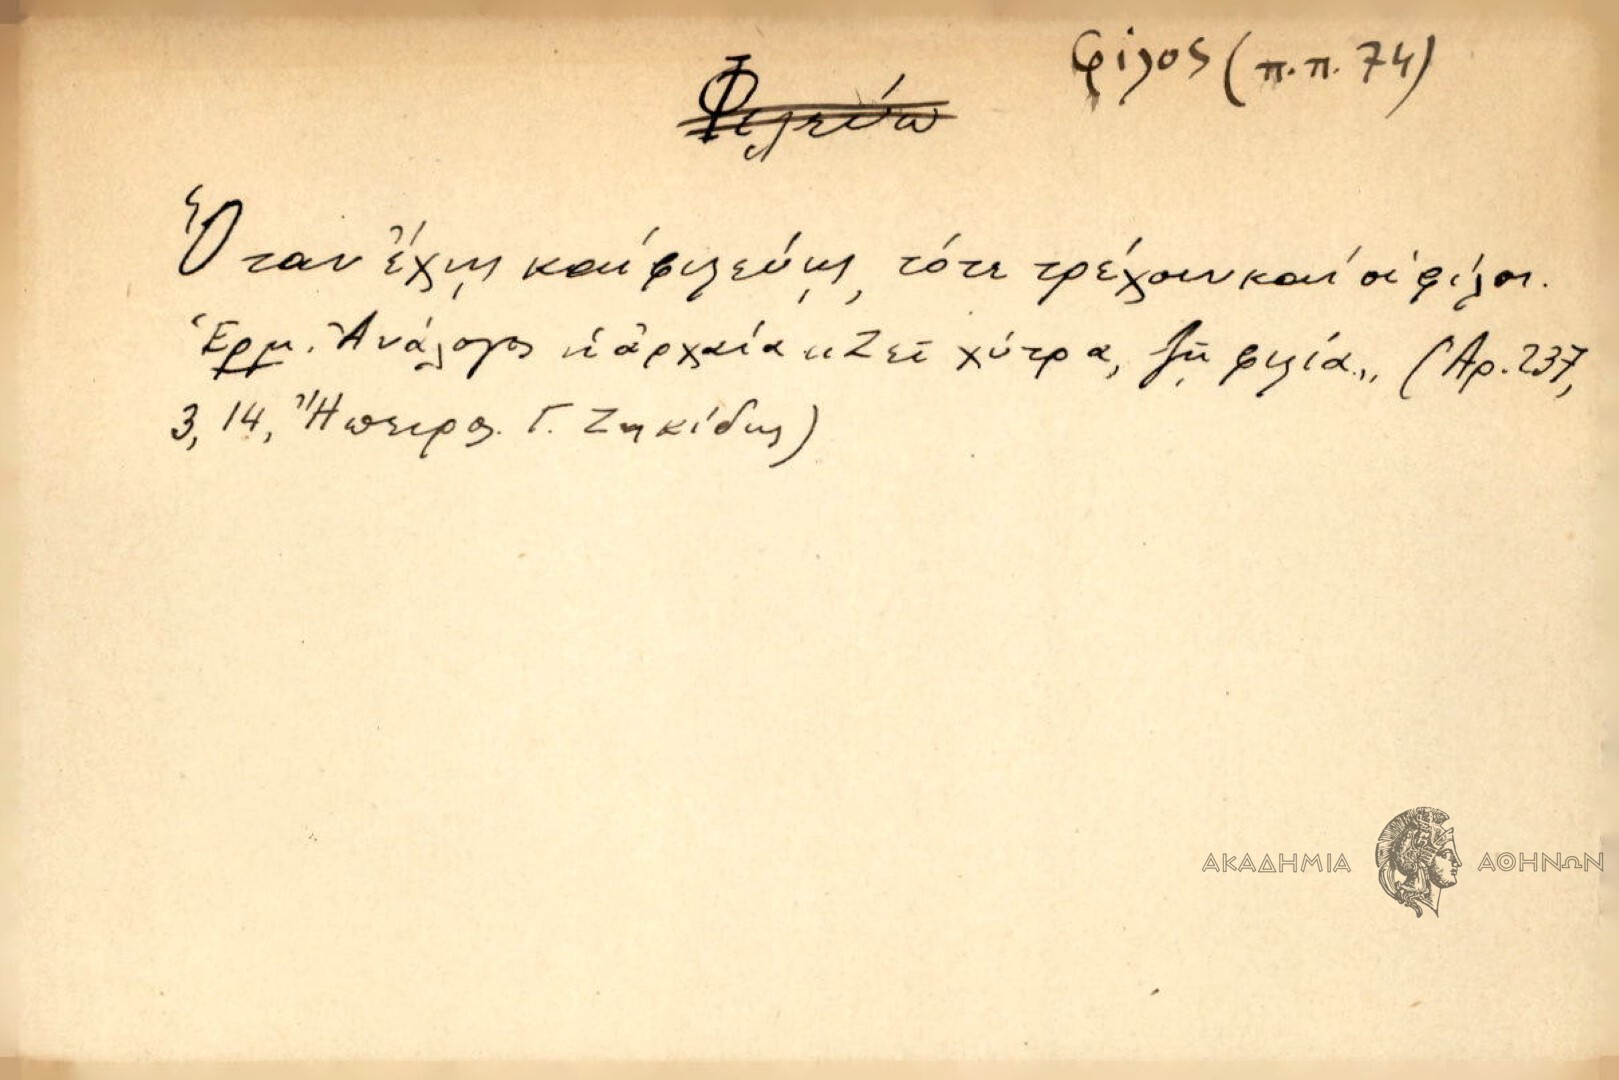 φίλος (π.π. 74)
Φιλεύω
Ὅταν ἔχῃς καί φιλεύῃς, τότε τρέχουν καί οἱ φίλοι.
Ἑρμ. Ἀνάλογος ἡ ἀρχαία „Ζεῖ χύτρα, ζῇ φιλία„ (Ἀρ. 237,
3, 14, Ἤπειρος. Γ. Ζηκίδης)
ΑΚΑΔΗΜΙΑ ΑΘΗΝΩΝ